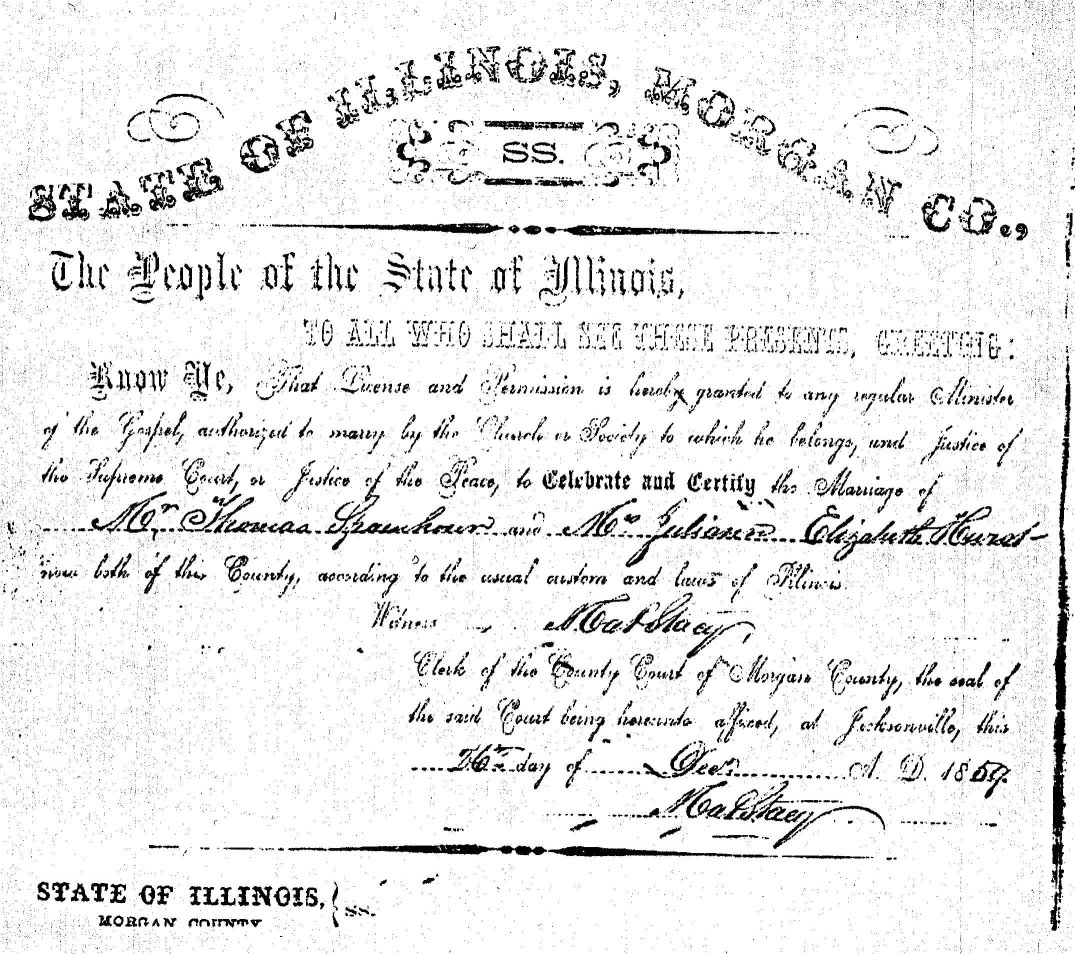 STATE OF ILLINOIS, MORGAN CO.,
SS.
The People of the State of Illinois,
TO ALL WHO SHALL SEE THESE PRESENTS, GREETING:
Know Ye, That License and Permission is hereby granted to any regular Minister
of the Gospel, authorized to marry by the Church or Society to which he belongs, and Justice of
the Supreme Court, or Justice of the Peace, to Celebrate and Certify the Marriage of
Mr Thomas Spainhower and Elizabeth Hurst
now both of this County, according to the usual custom and laws of Illinois.
Witness Mat Stacy
Clerk of the County Court of Morgan County, the seal of
the said Court being hereunto affixed, at Jacksonville, this
day of Decr A. D. 1859.
Mat Stacy
STATE OF ILLINOIS,
MORGAN COUNTY
ss.